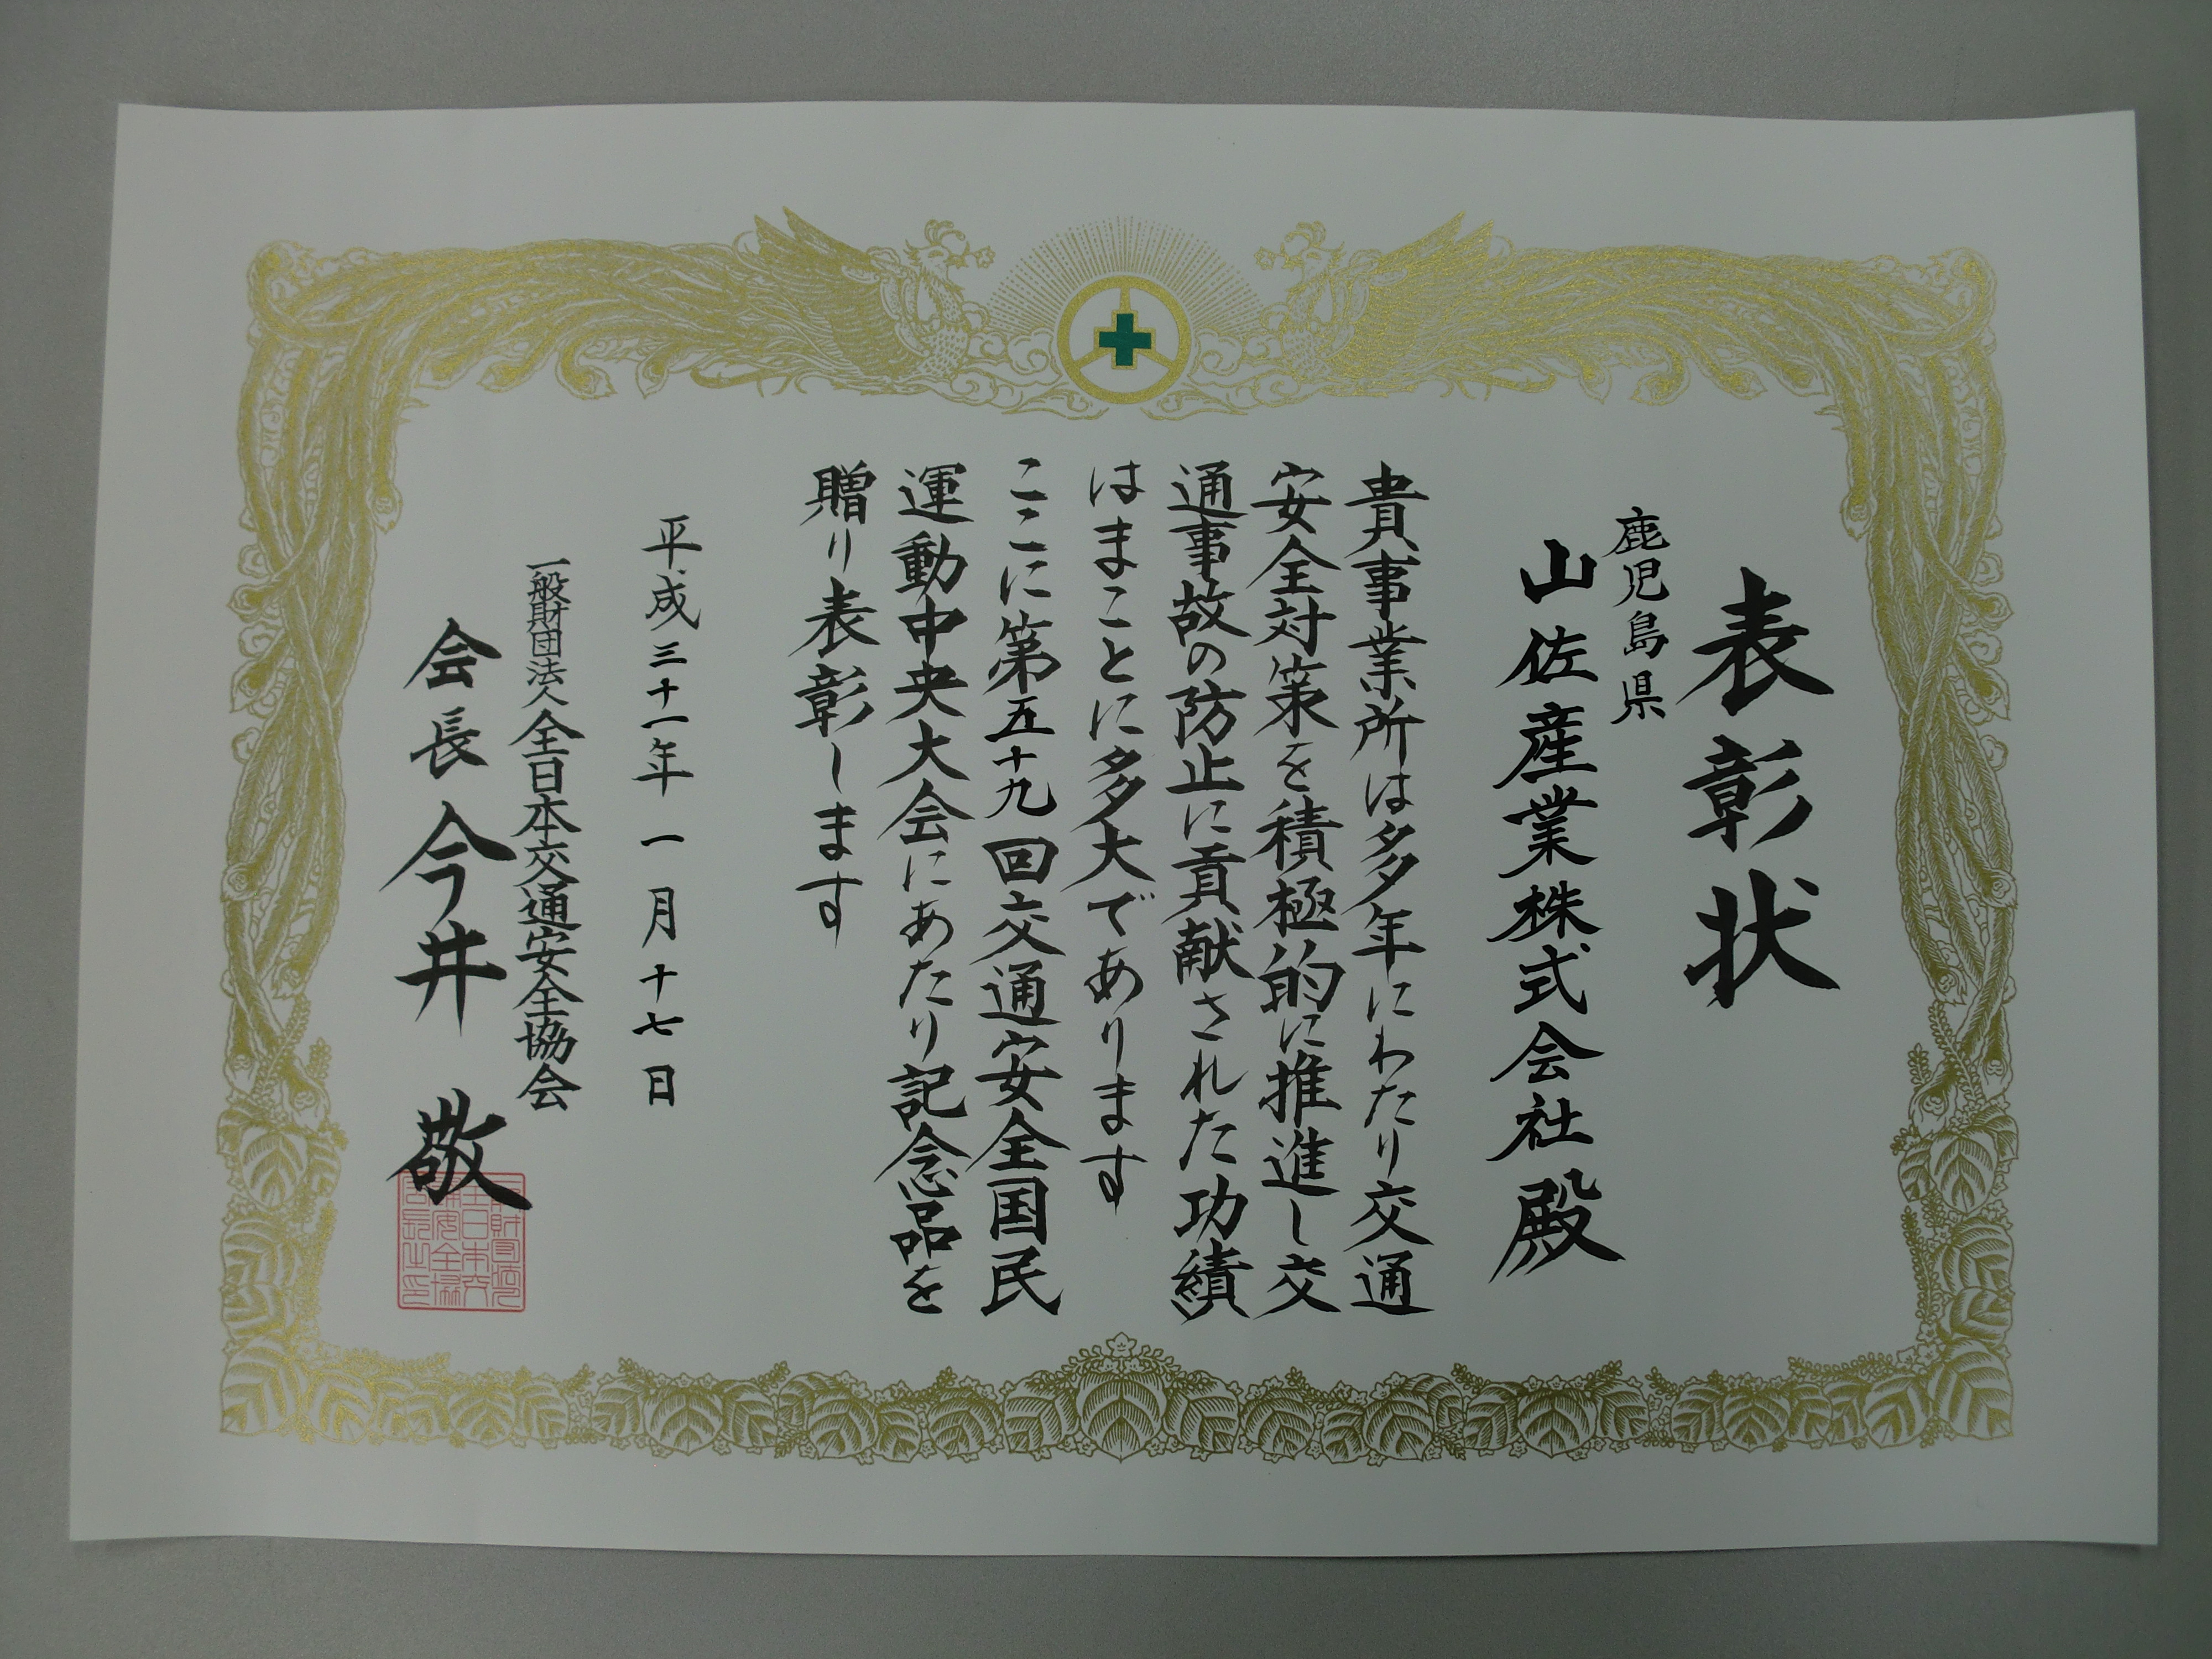 表彰状
鹿児島県
山佐産業株式会社殿
貴事業所は多年にわたり交通
安全対策を積極的に推進し交
通事故の防止に貢献された功績
はまことに多大であります
ここに第五十九回交通安全国民
運動中央大会にあたり記念品を
贈り表彰します
平成三十一年一月十七日
一般財団法人全日本交通安全協会
会長今井敬